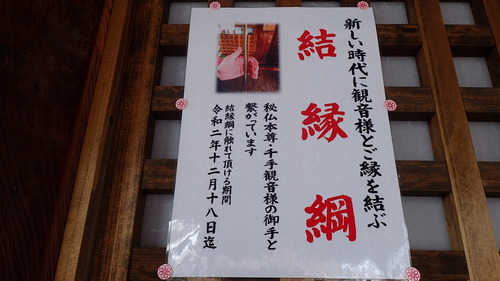 新しい時代に観音様とご縁を結ぶ
結縁綱
秘仏本尊・千手観音様の御手と
繋がっています
結縁綱に触れて頂ける期間
令和二年十二月十八日迄